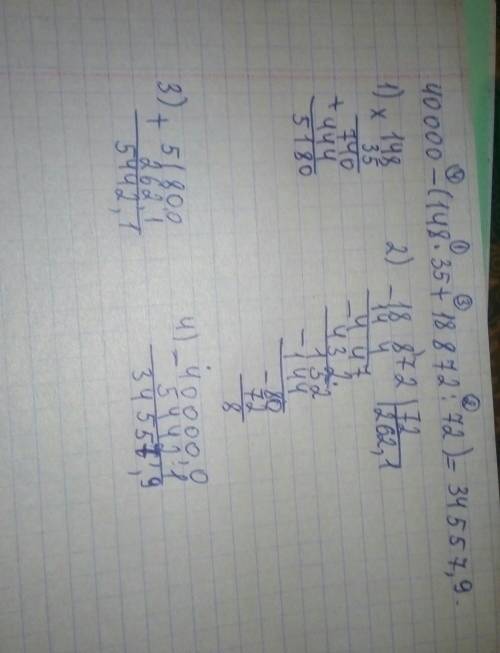 ④ ① ③ ②
40000 - (148 · 35 + 18872 : 72) = 34557,9.
1) × 148
35
740
+ 444
5180
2) - 18 872 | 72
14 4 | 262,1
- 4 47
4 32
- 152
144
- 80
72
8
3) + 5180,0
262,1
5442,1
4) - 40000,0
5442,1
34557,9